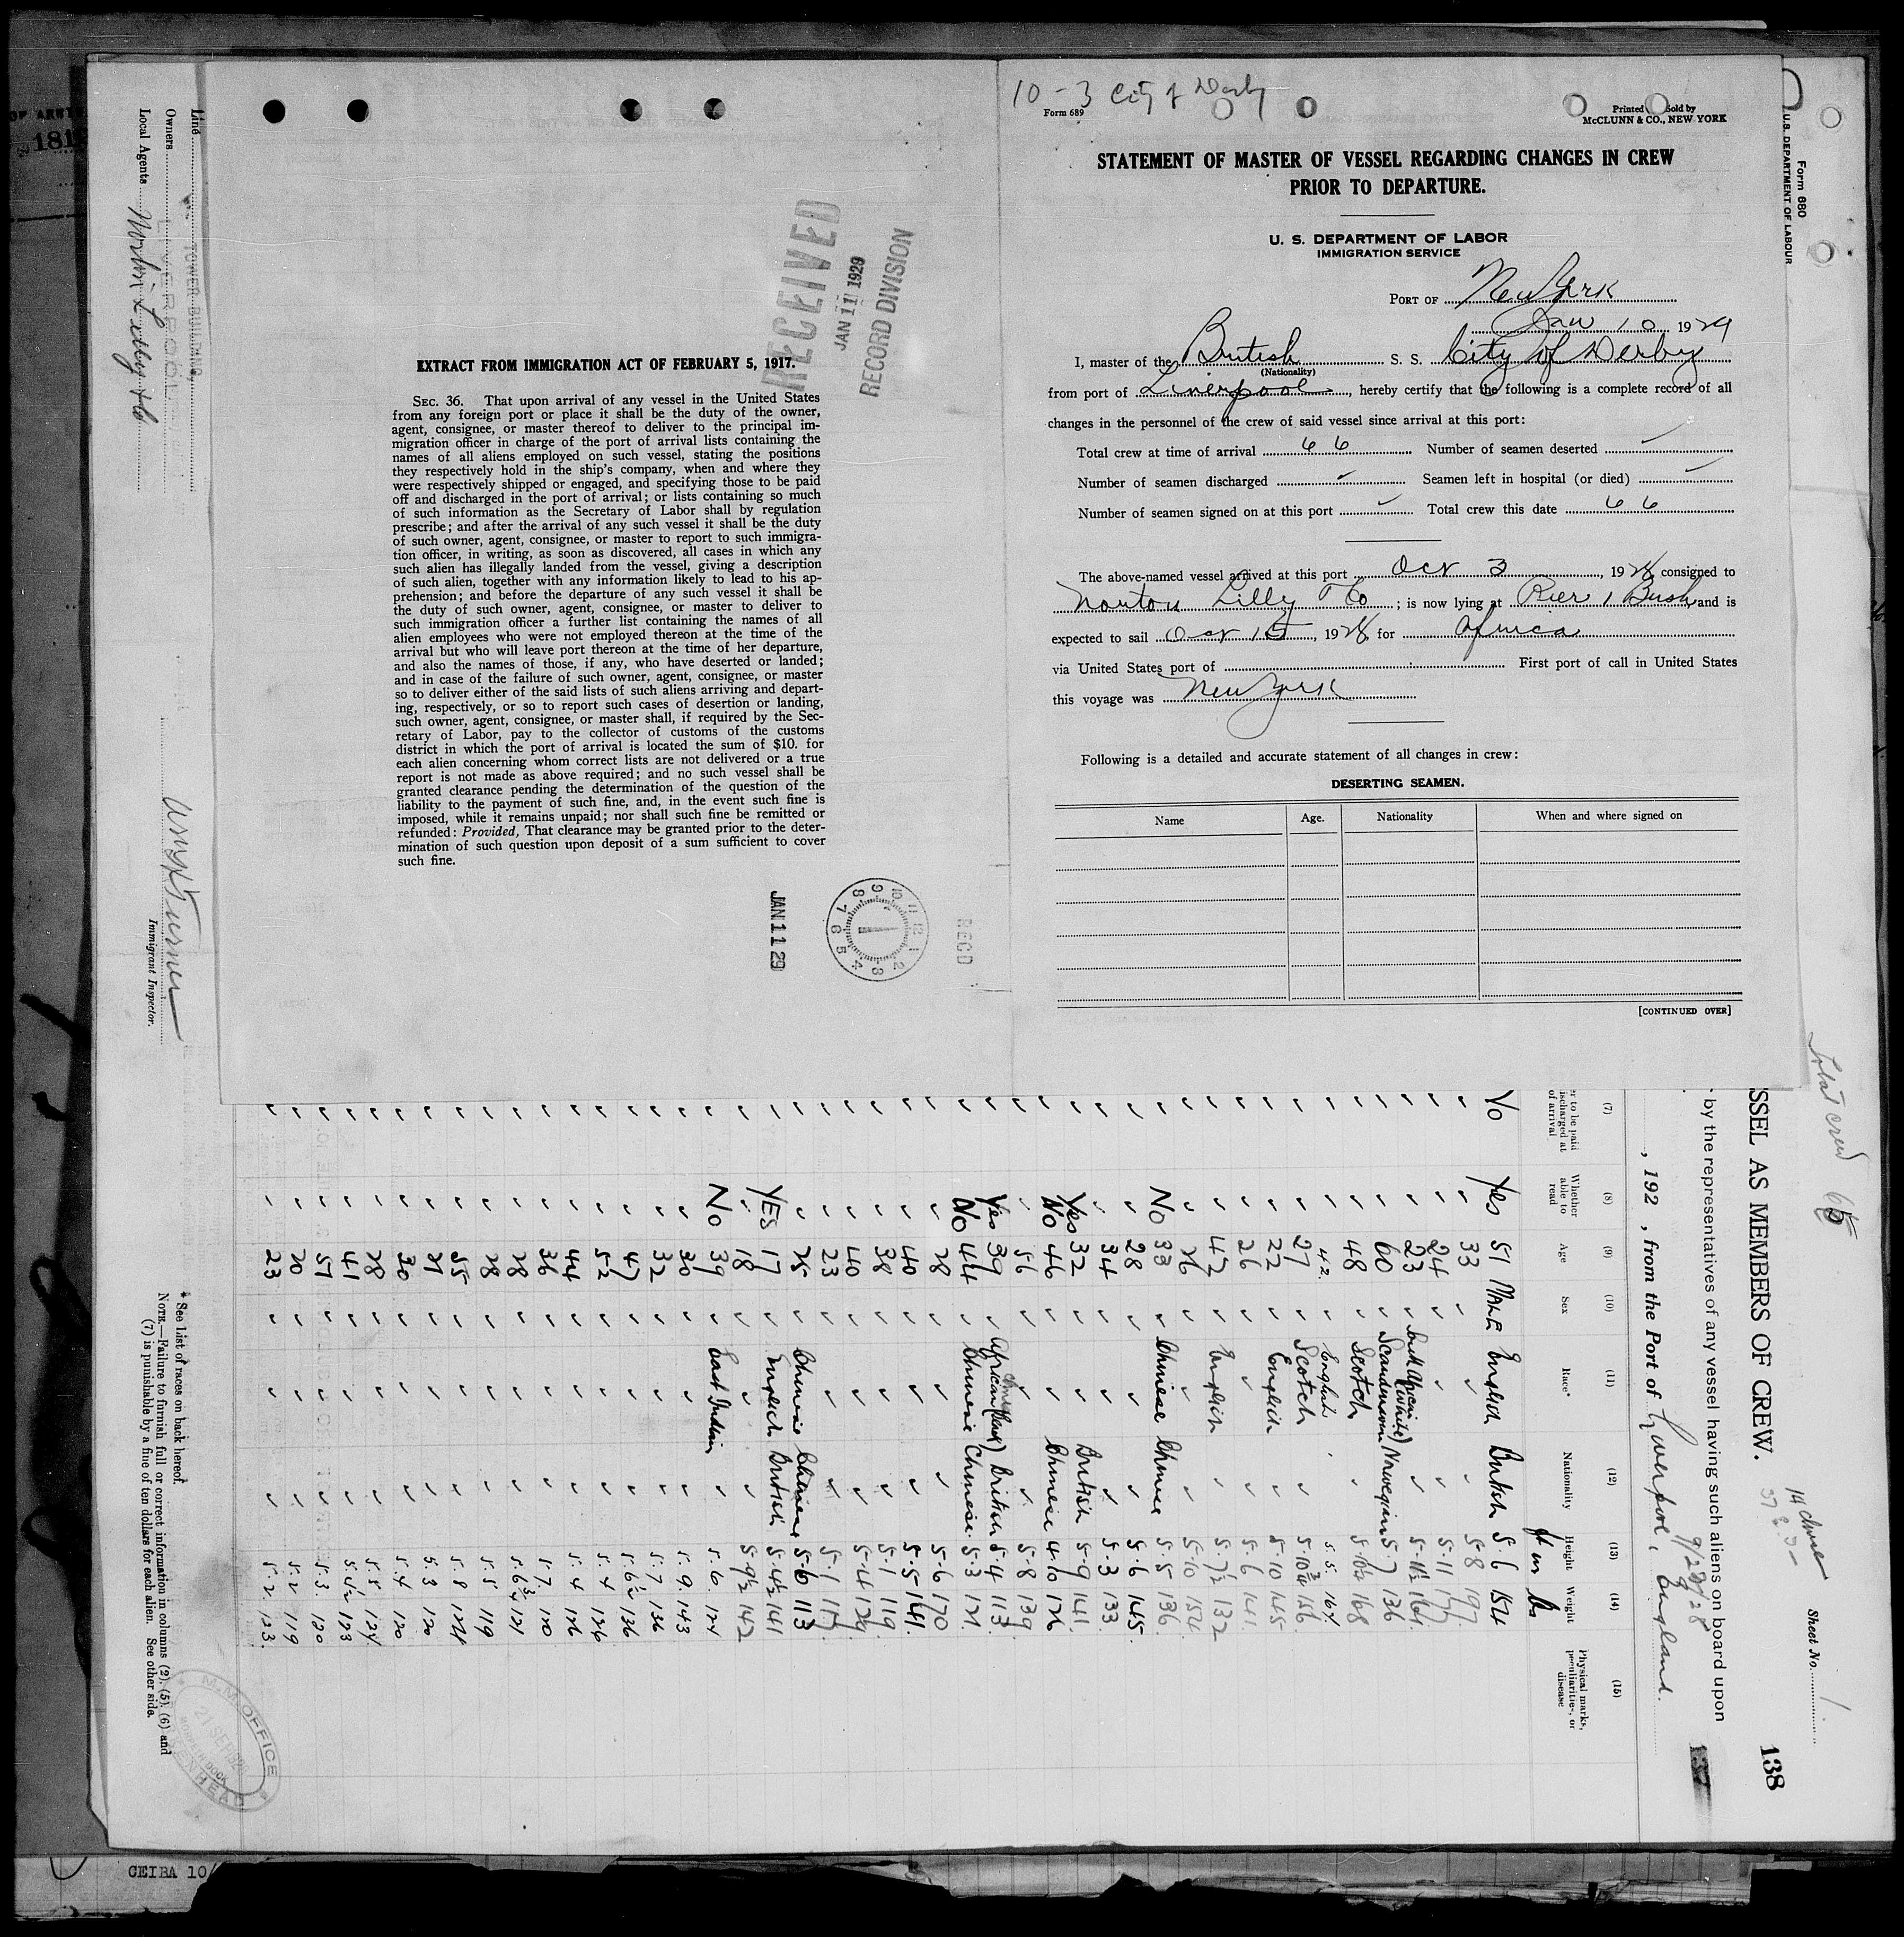 10-3 City of Derby
Form 689
Printed Sold by
McCLUNN & CO., NEW YORK
STATEMENT OF MASTER OF VESSEL REGARDING CHANGES IN CREW
PRIOR TO DEPARTURE.
U. S. DEPARTMENT OF LABOR
IMMIGRATION SERVICE
PORT OF New York
Jan 10 1929
I, master of the British S. S. City of Derby
(Nationality)
from port of Liverpool, hereby certify that the following is a complete record of all
changes in the personnel of the crew of said vessel since arrival at this port:
Total crew at time of arrival 66 Number of seamen deserted ✓
Number of seamen discharged ✓ Seamen left in hospital (or died) ✓
Number of seamen signed on at this port ✓ Total crew this date 66
The above-named vessel arrived at this port Oct 3, 1928 consigned to
Norton Lilly & Co; is now lying at Pier 1 Bush and is
expected to sail Oct 15, 1928 for Africa
via United States port of First port of call in United States
this voyage was New York
Following is a detailed and accurate statement of all changes in crew:
DESERTING SEAMEN.
Name Age. Nationality When and where signed on
[CONTINUED OVER]
RECEIVED
JAN 11 1929
RECORD DIVISION
EXTRACT FROM IMMIGRATION ACT OF FEBRUARY 5, 1917.
SEC. 36. That upon arrival of any vessel in the United States
from any foreign port or place it shall be the duty of the owner,
agent, consignee, or master thereof to deliver to the principal im-
migration officer in charge of the port of arrival lists containing the
names of all aliens employed on such vessel, stating the positions
they respectively hold in the ship's company, when and where they
were respectively shipped or engaged, and specifying those to be paid
off and discharged in the port of arrival; or lists containing so much
of such information as the Secretary of Labor shall by regulation
prescribe; and after the arrival of any such vessel it shall be the duty
of such owner, agent, consignee, or master to report to such immigra-
tion officer, in writing, as soon as discovered, all cases in which any
such alien has illegally landed from the vessel, giving a description
of such alien, together with any information likely to lead to his ap-
prehension; and before the departure of any such vessel it shall be
the duty of such owner, agent, consignee, or master to deliver to
such immigration officer a further list containing the names of all
alien employees who were not employed thereon at the time of the
arrival but who will leave port thereon at the time of her departure,
and also the names of those, if any, who have deserted or landed;
and in case of the failure of such owner, agent, consignee, or master
so to deliver either of the said lists of such aliens arriving and depart-
ing, respectively, or so to report such cases of desertion or landing,
such owner, agent, consignee, or master shall, if required by the Sec-
retary of Labor, pay to the collector of customs of the customs
district in which the port of arrival is located the sum of $10. for
each alien concerning whom correct lists are not delivered or a true
report is not made as above required; and no such vessel shall be
granted clearance pending the determination of the question of the
liability to the payment of such fine, and, in the event such fine is
imposed, while it remains unpaid; nor shall such fine be remitted or
refunded: Provided, That clearance may be granted prior to the deter-
mination of such question upon deposit of a sum sufficient to cover
such fine.
JAN 11 29
RECD
Form 680
U.S. DEPARTMENT OF LABOUR
Total crew
14 Chinese
Sheet No. 1
138
SSEL AS MEMBERS OF CREW.
by the representatives of any vessel having such aliens on board upon
, 192 , from the Port of Liverpool, England.
(7) (8) (9) (10) (11) (12) (13) (14) (15)
er to be paid
ischarged at
of arrival
Whether
able to
read
Age
Sex
Race*
Nationality
Height
Weight
Physical marks,
peculiarities, or
disease
ft in lbs
No Yes 51 MALE English British 5 6 154
33 5 8 197
24 5 11
23 South African (White) 5 11½
60 Scandinavian Norwegian 5 7 136
48 Scotch 168
42 English 5.5
27 Scotch 5.10¾ 156
22 English 5 10 145
26 5 6 141
42 English 5 7½ 132
26 5 10
No 33 Chinese Chinese 5.5 136
28 5 6 145
34 5 3 133
Yes 32 British 5 9 141
No 46 Chinese 4 10 126
56 5 8 139
Yes 39 African (Black) British 5 4 113
No 44 Chinese Chinese 5.3 121
28 5 6 170
40 5.5 141
38 5 1 119
40 5 4
23 5 1
25 Chinese Chinese 5 6 113
YES 17 English British 5 4½ 141
18 5 9½ 142
No 39 East Indian 5.6 124
30 5.9 143
32 5.7 136
47 5.6½ 136
52 5.4 126
44 5.4 126
36 5.7 120
28 5.6¾ 121
28 5.5 119
55 5.8 128
27 5.3 120
30 5.4 120
28 5.5 124
41 5.4½ 123
57 5.3 120
20 5.2 119
23 5.2 123
* See List of races on back hereof.
NOTE.—Failure to furnish full or correct information in columns (2), (5), (6) and
(7) is punishable by a fine of ten dollars for each alien. See other side.
M.M. OFFICE
21 SEP 1928
Line
TOWER BUILDING,
Owners
LIVERPOOL
Local Agents Norton Lilly & Co
Turner
Immigrant Inspector.
1818
CEIBA 10/